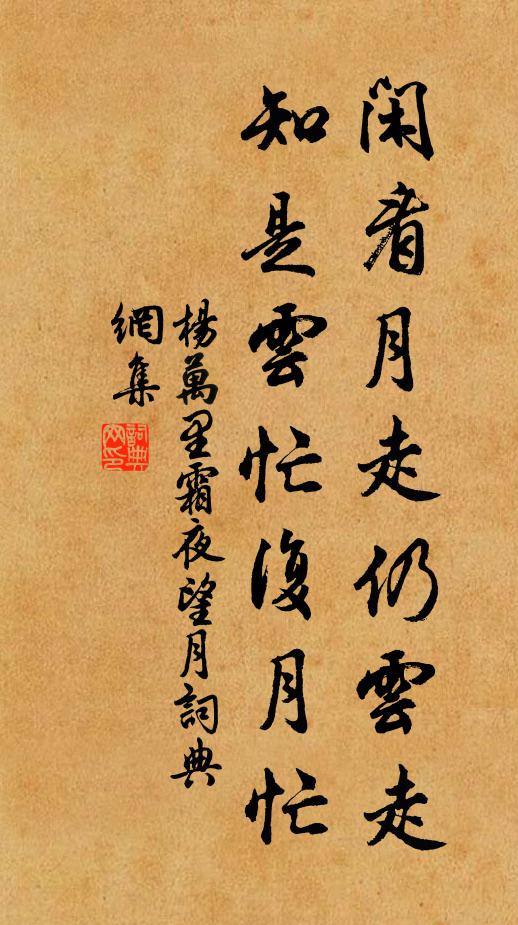 閑看月走仍雲走
知是雲忙復月忙
楊萬里霜夜望月詞典
網集
詞典
网印